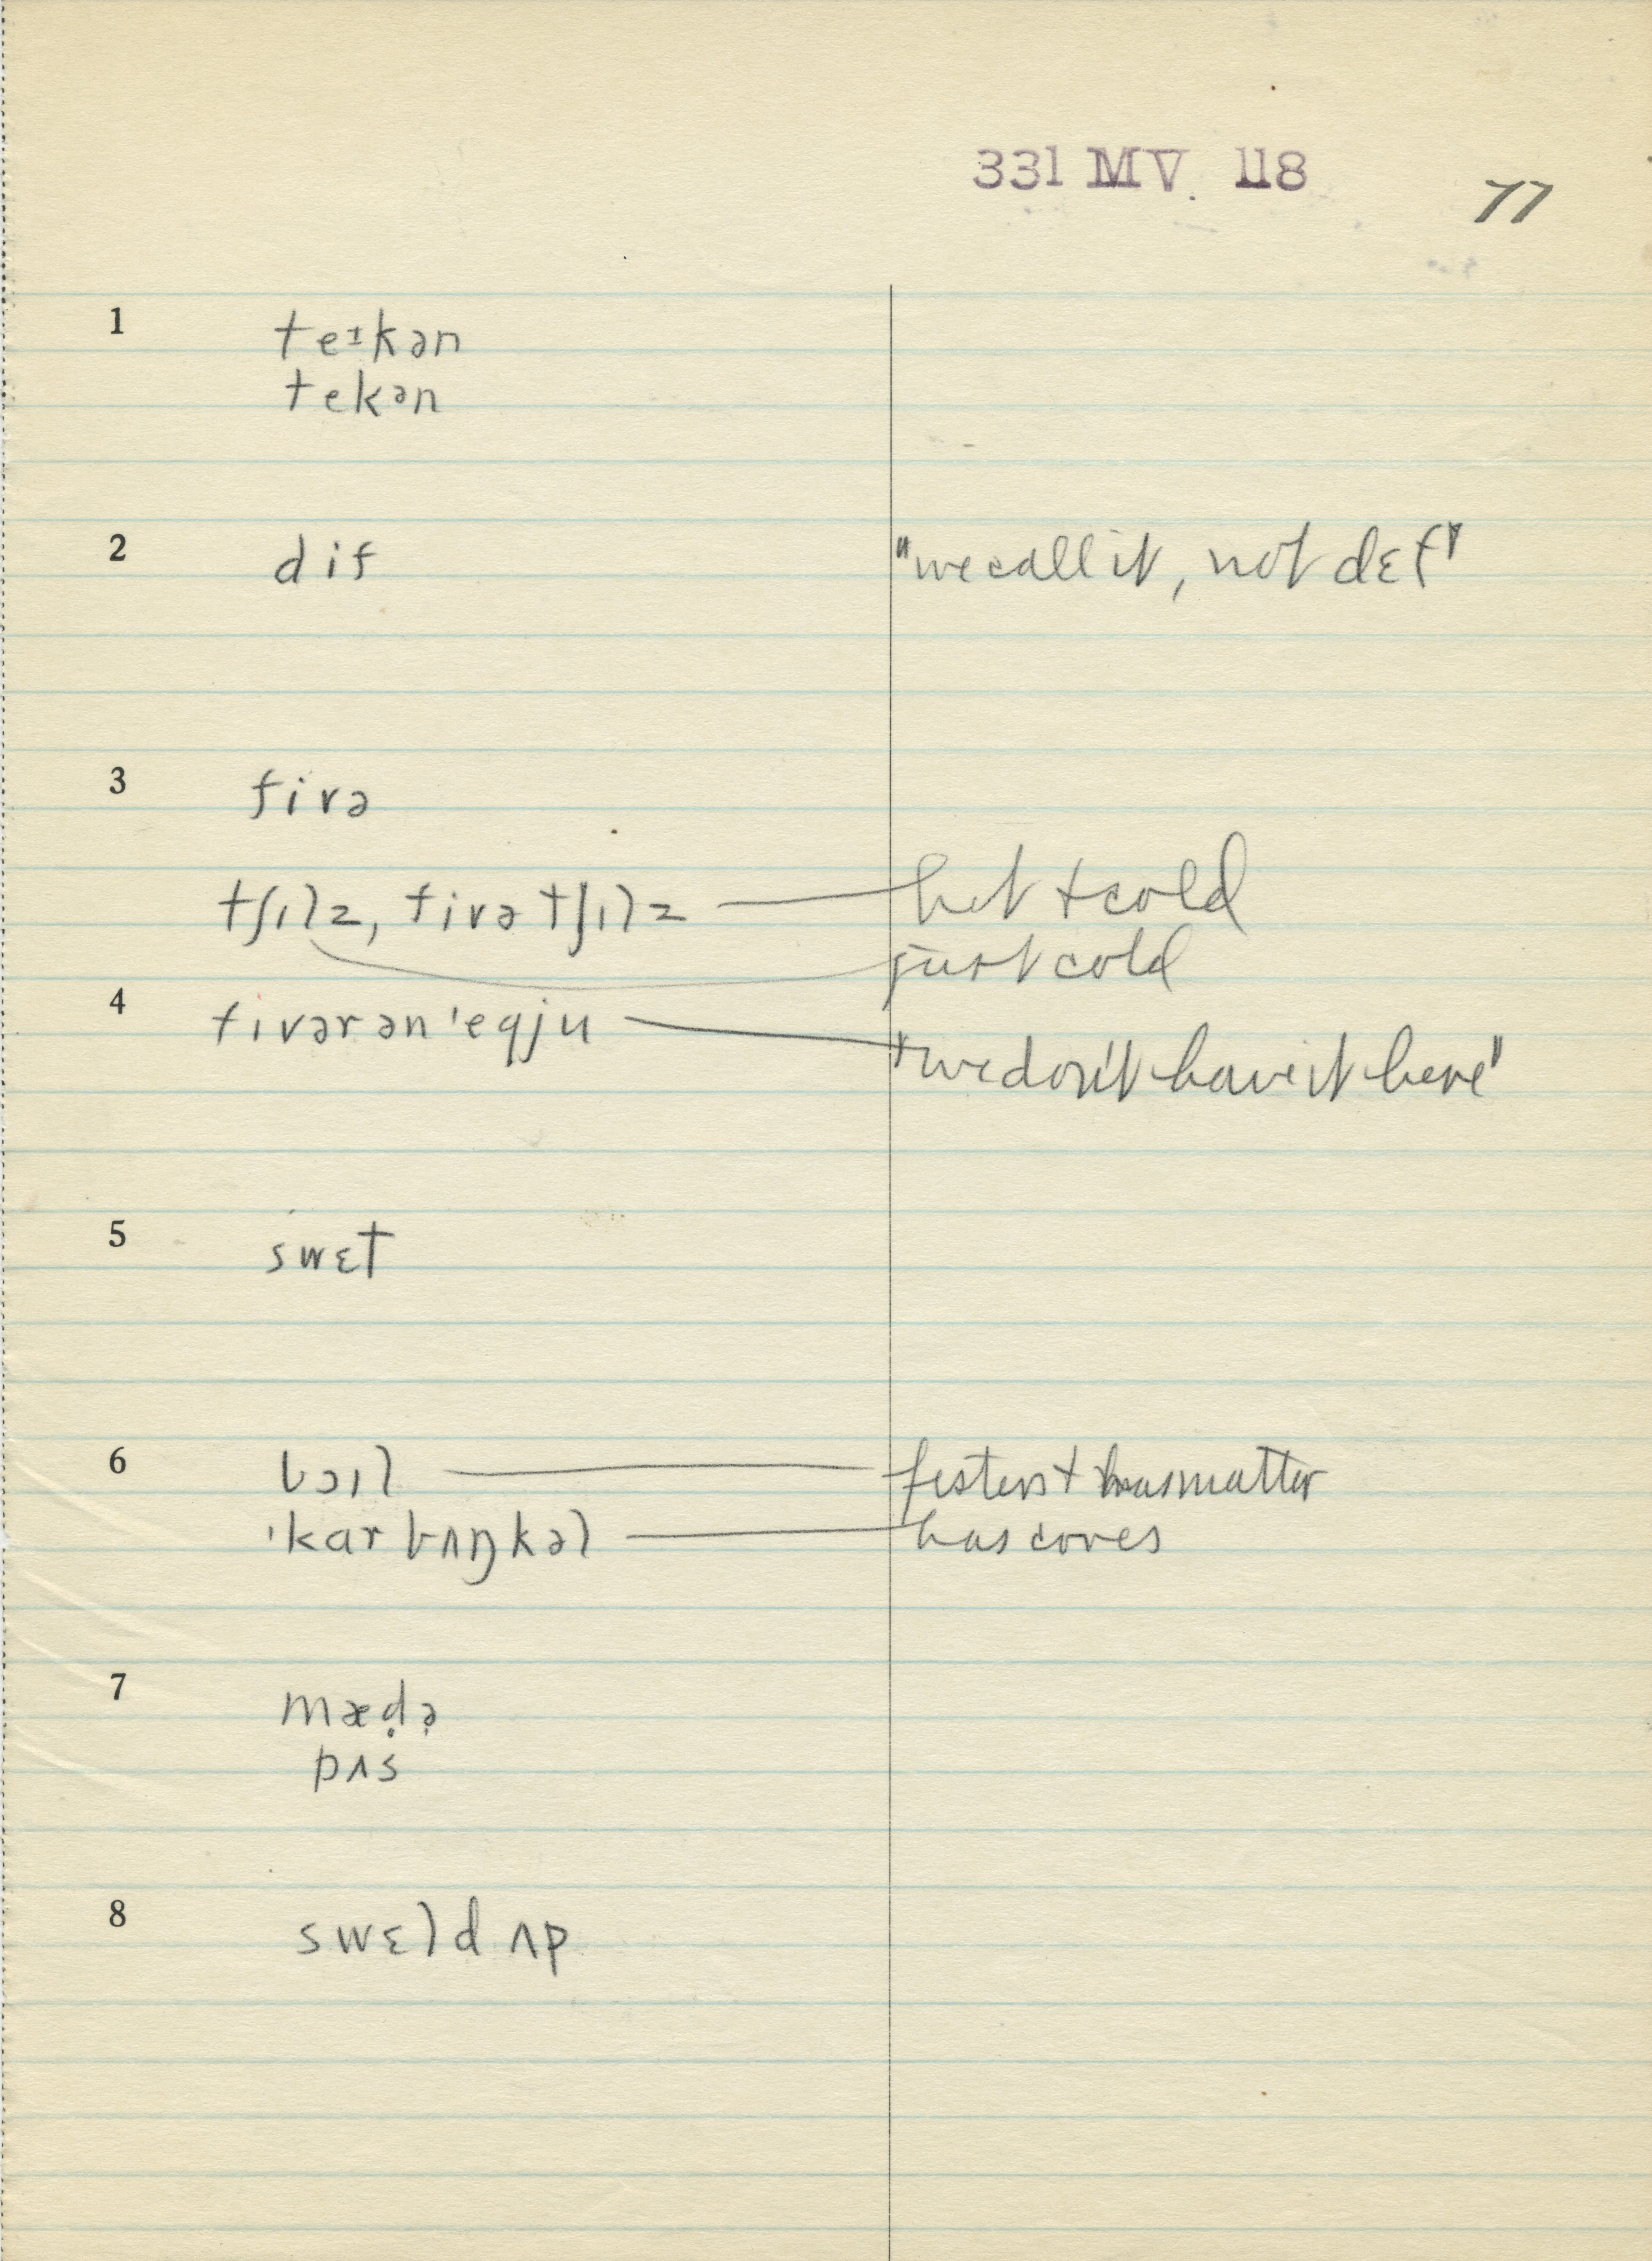 331 MV. 118
77
1 teɪkən
tekən
2 dif "we call it, not dɛf"
3 fivə
tʃɪlz, fivə tʃɪlz — hot + cold
just cold
4 fivər ən 'eqju — "we don't have it here"
5 swɛt
6 bɔɪl — festers + has matter
'karbʌŋkəl — has cores
7 mædə
pʌs
8 swɛld ʌp